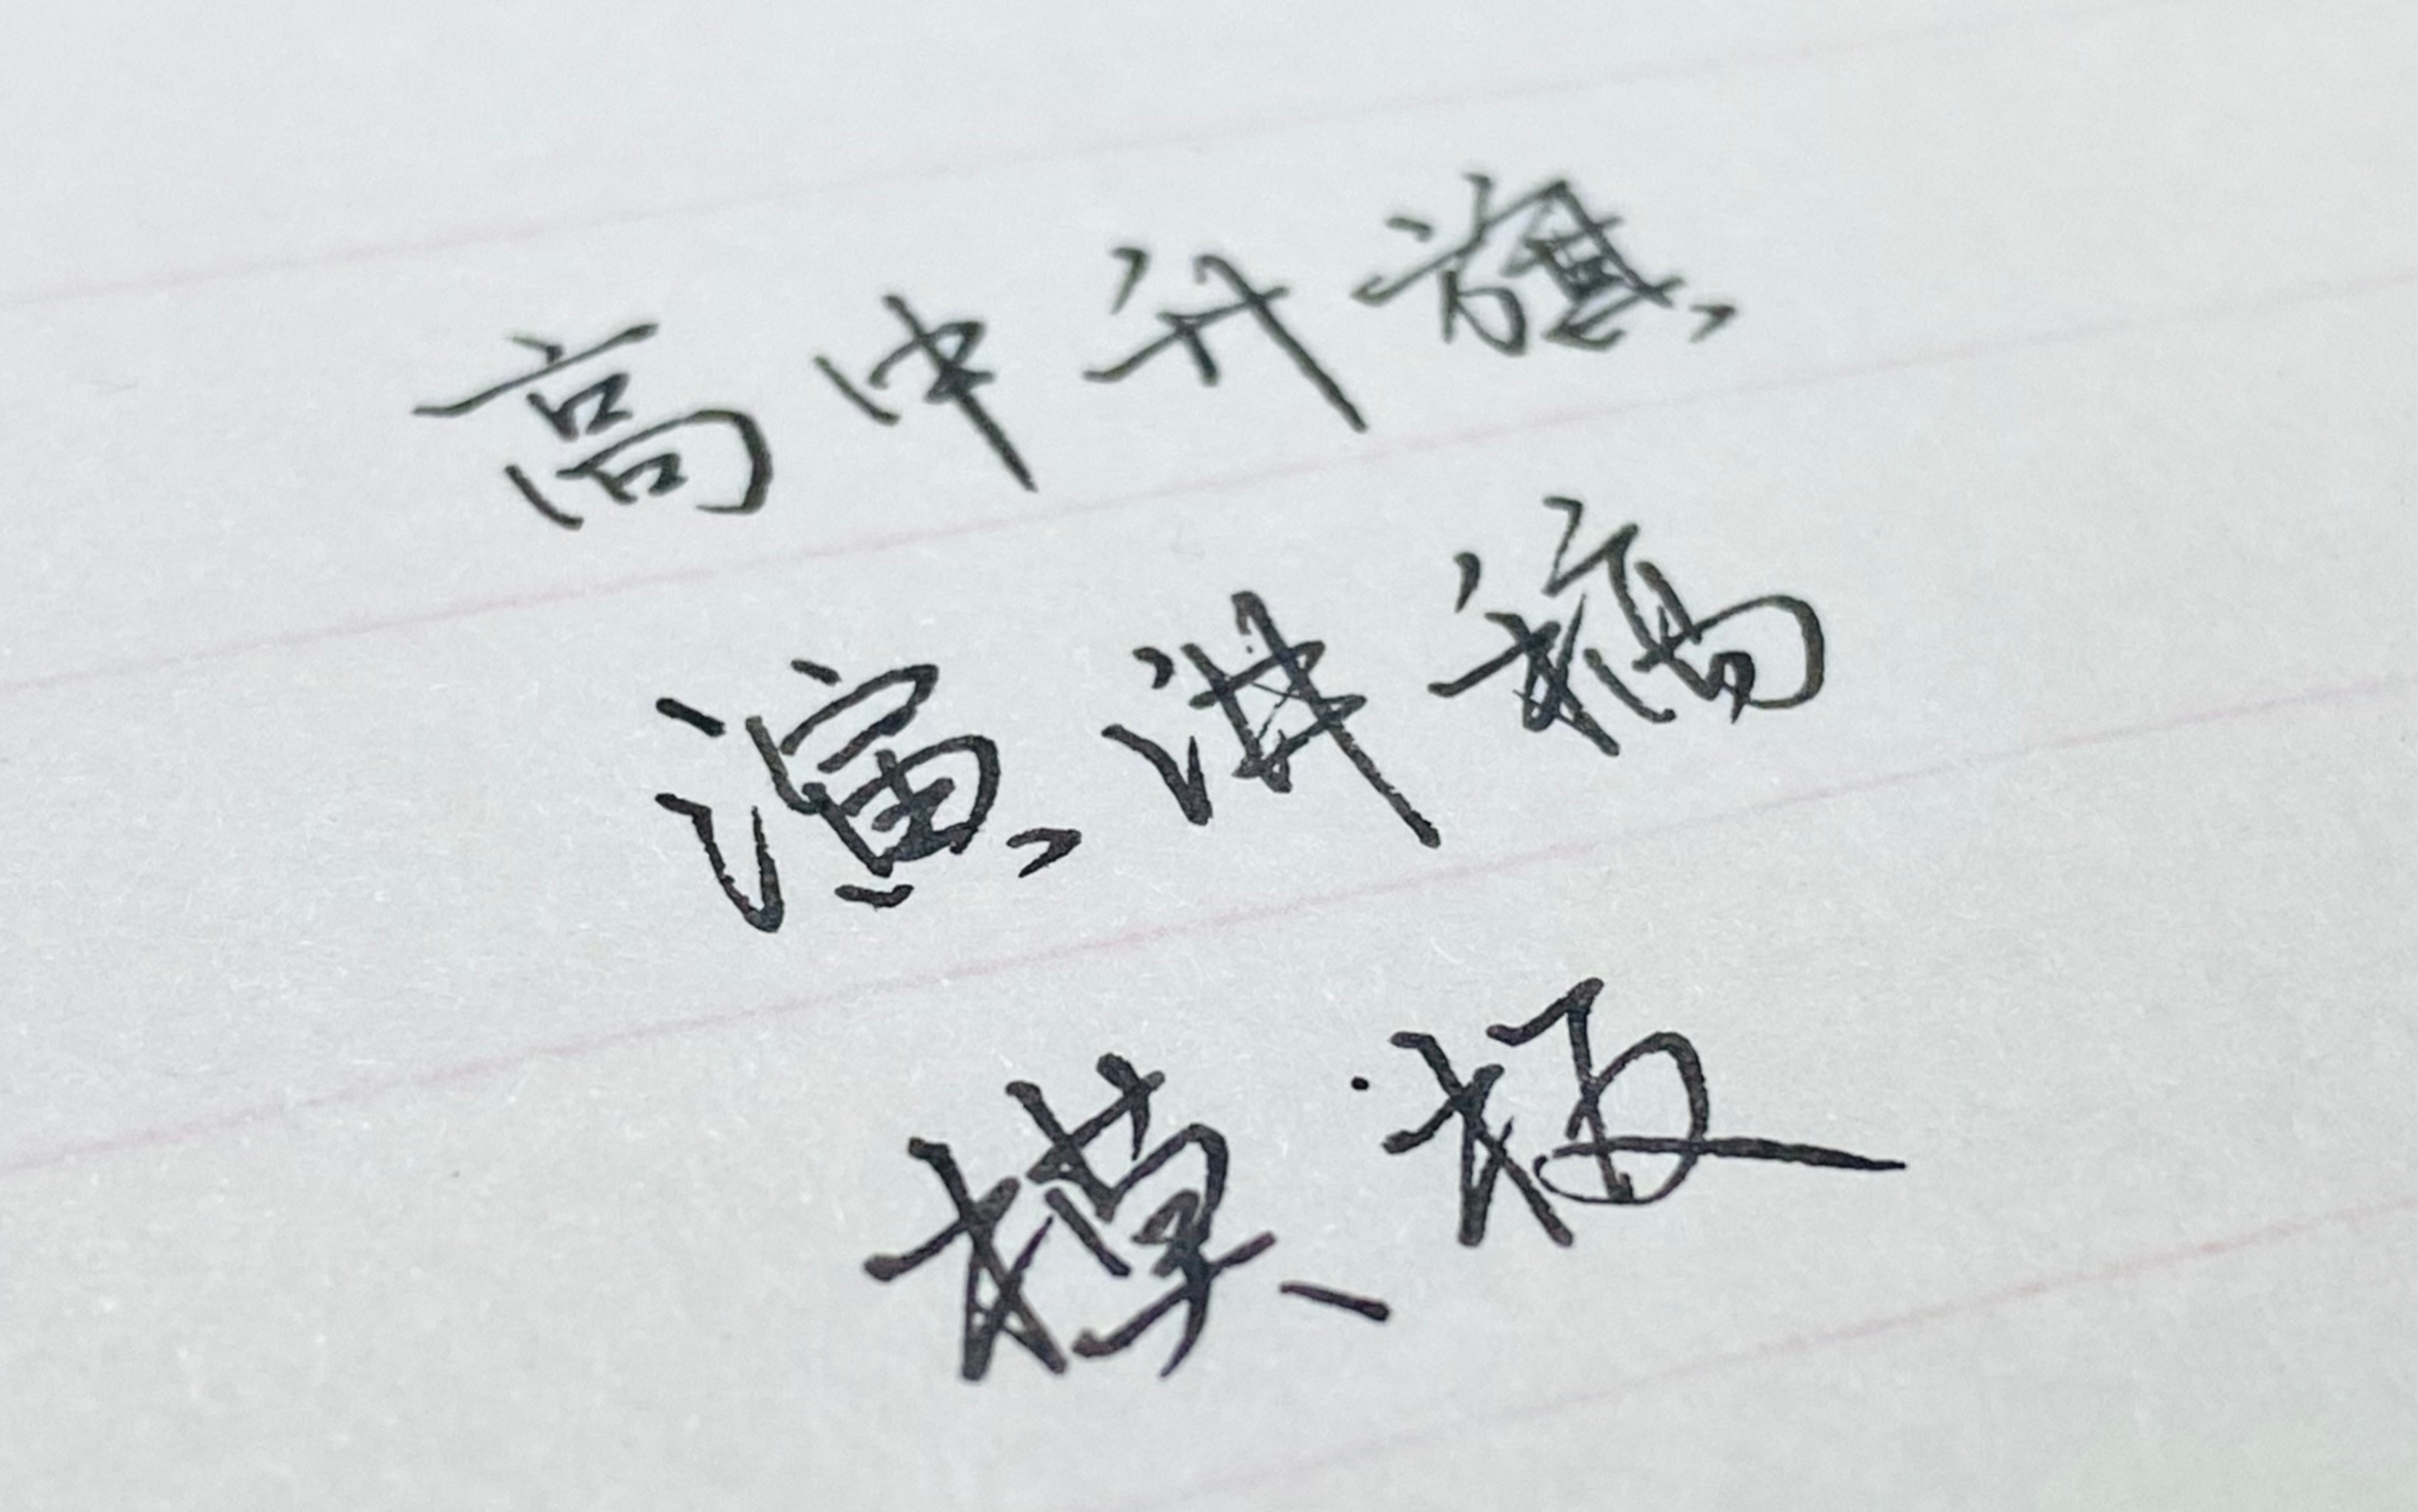 高中升旗
演讲稿
模板